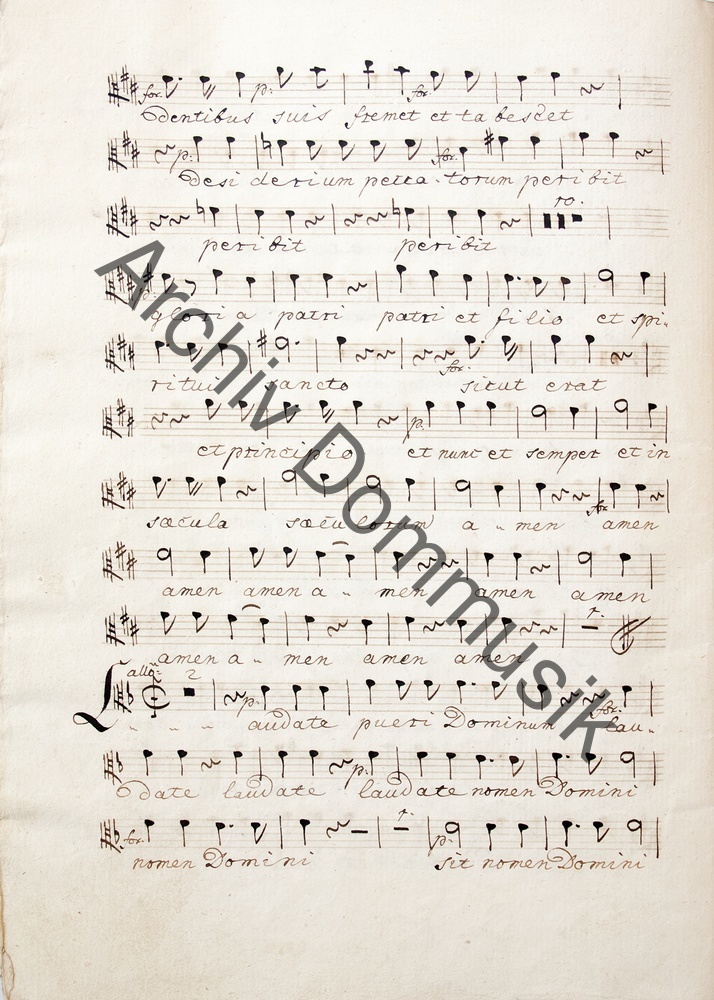 for. p: for.
Dentibus suis fremet et tabescet
p: for.
Desiderium pecca-torum peribit
10.
peribit peribit
gloria patri patri et filio et spi-
for.
ritui sancto sicut erat
p:
et principio et nunc et semper et in
for
sæcula sæculorum a - men amen
amen amen a - men amen amen
1.
amen a - men amen amen
allo: 2 p: for.
Laudate pueri Dominum lau-
p:
date laudate laudate nomen Domini
for. 1. p:
nomen Domini sit nomen Domini
Archiv Dommusik